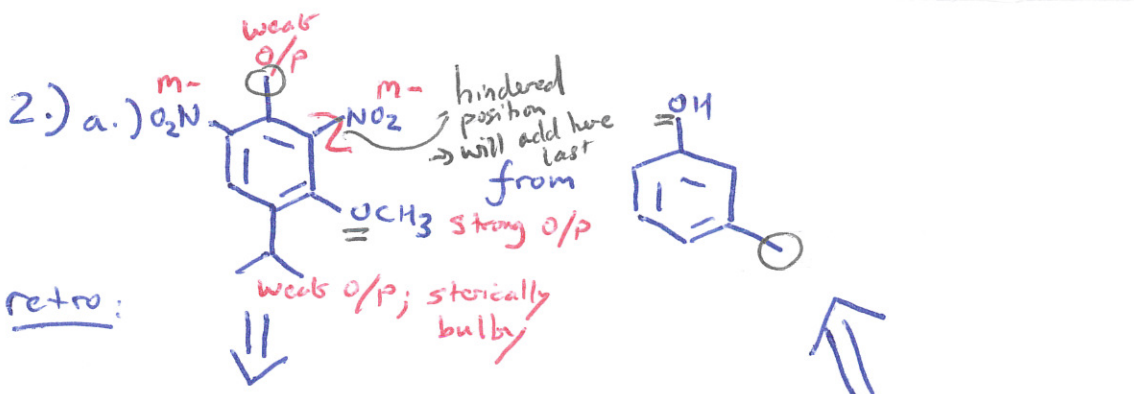 weak
O/P
m-
m-
2.) a.) O₂N
NO₂
hindered
position
→ will add here
last
OH
from
OCH₃ strong O/P
weak O/P; sterically
bulky
retro: